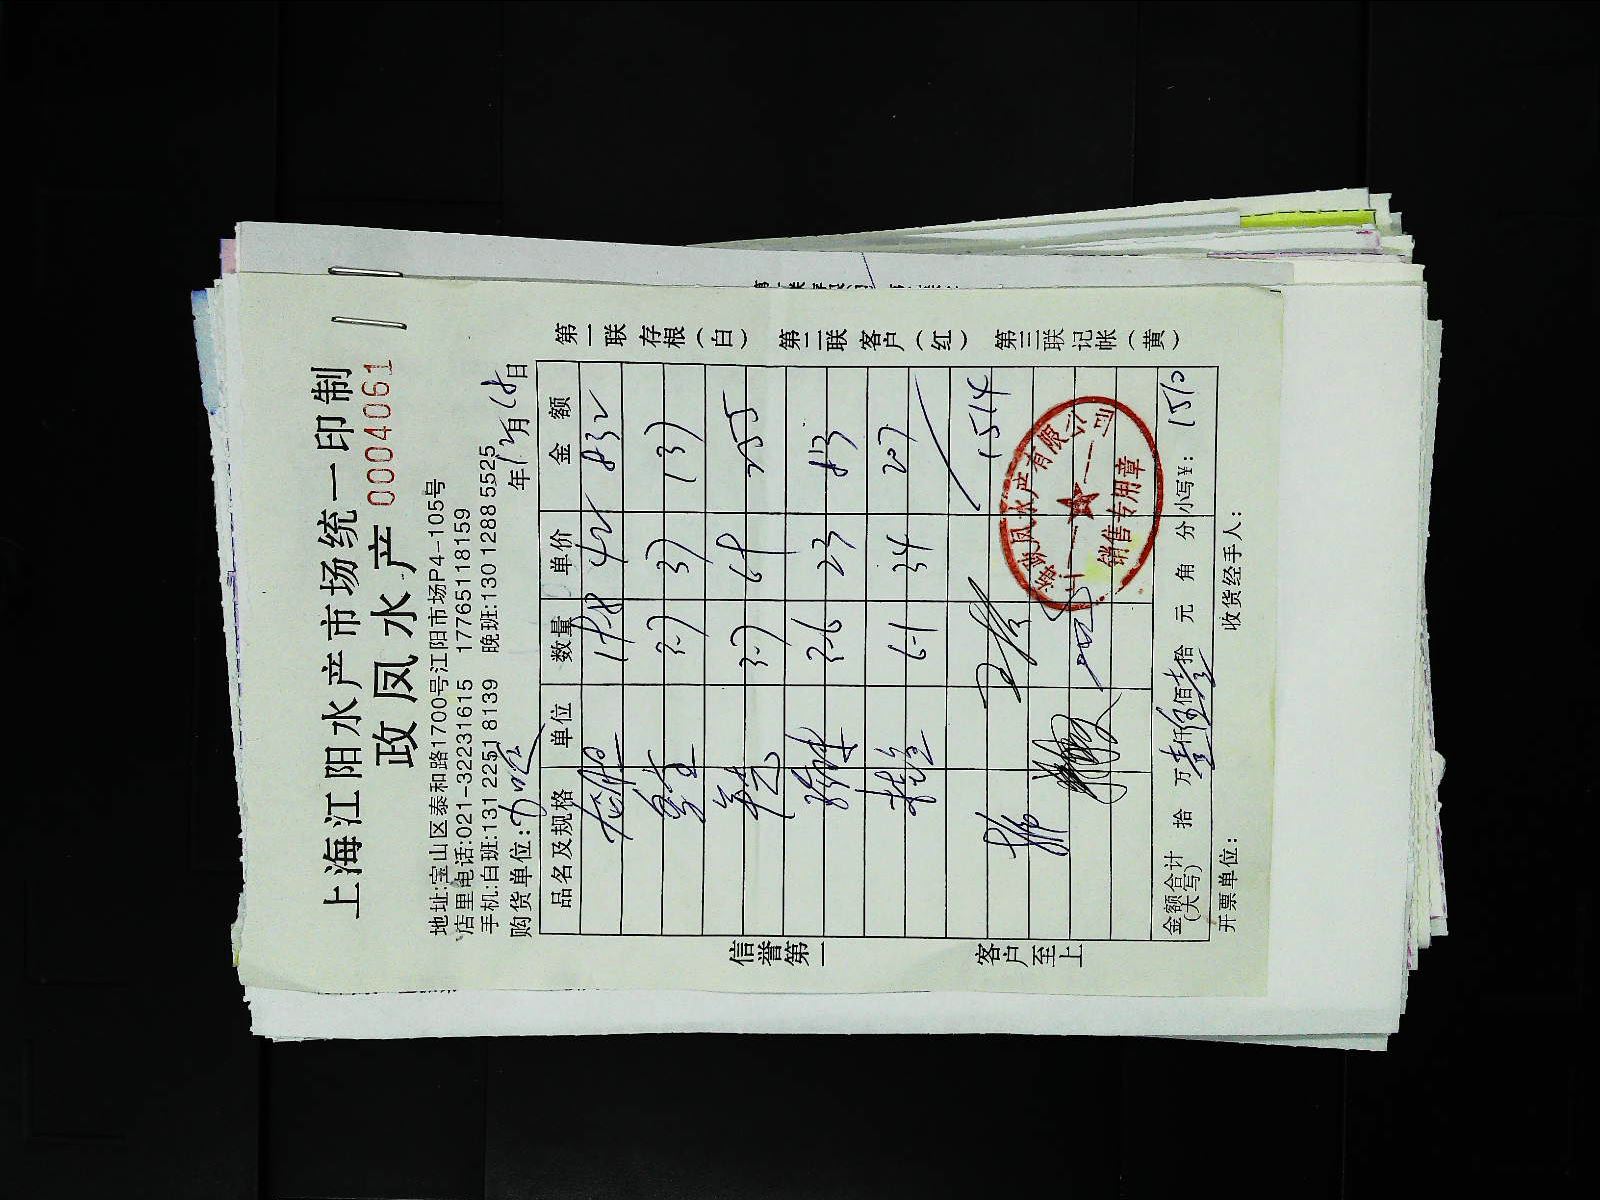 上海江阳水产市场统一印制
政凤水产 0004061
地址:宝山区泰和路1700号江阳市场P4-105号
店里电话:021-32231615 17765118159
手机:白班:131 2251 8139 晚班:130 1288 5525
购货单位: 年12月18日
品名及规格 单位 数量 单价 金额
19.8 42 832
3.7 37 137
3.7 69 255
3.6 23 83
6.1 34 207
1514
金额合计(大写) 拾 万 壹仟伍佰壹拾 元 角 分 小写¥: 1510
开票单位: 收货经手人:
第一联 存根(白) 第二联 客户(红) 第三联 记帐(黄)
信誉第一 客户至上
凤水产有限公司
销售专用章